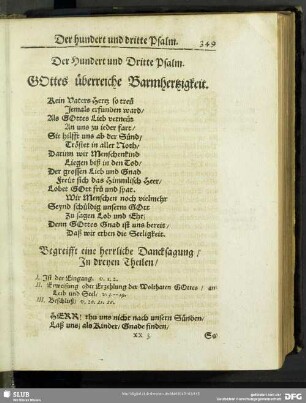 Der hundert und dritte Psalm. 349
Der Hundert und Dritte Psalm.
GOttes überreiche Barmhertzigkeit.
Kein Vaters Hertz so treü
Jemals erfunden ward/
Als GOttes Lieb verneüt
An uns zu jeder fart/
Sie hilfft uns ab der Sünd/
Tröstet in aller Noth/
Darum wir Menschenkind
Liegen biß in den Tod/
Der grossen Lieb und Gnad
Freüt sich das Himmlisch Heer/
Lobet GOtt frü und spat.
Wir Menschen noch vielmehr
Seynd schüldig unserm GOtt
Zu sagen Lob und Ehr/
Denn GOttes Gnad ist uns bereit/
Daß wir erben die Seeligkeit.
Begreifft eine herrliche Dancksagung/
In dreyen Theilen/
I. Ist der Eingang. v. 1. 2.
II. Erweisung oder Erzehlung der Wolthaten GOttes/ an
Leib und Seel.
III. Beschluß. v. 20. 21. 22.
HERR! thu uns nicht nach unsern Sünden/
Laß uns/ als Kinder/ Gnade finden/
XX 3
SLUB
DFG